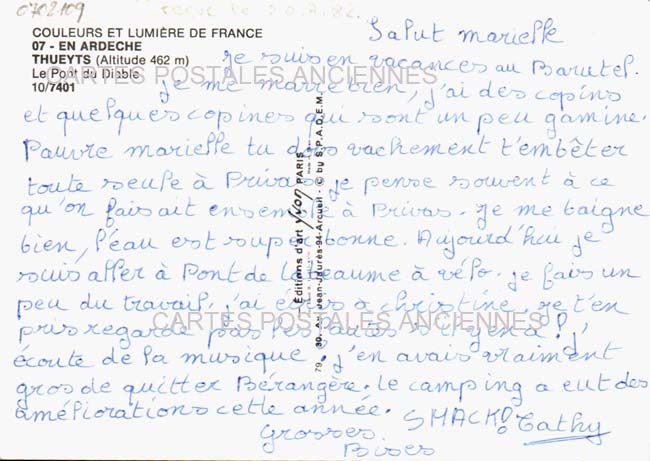 0702109
reçue le 30.7.82.
COULEURS ET LUMIÈRE DE FRANCE
07 - EN ARDECHE
THUEYTS (Altitude 462 m)
Le Pont du Diable
10/7401
Salut marielle
Je suis en vacances au Barutel.
Je me marre bien, j'ai des copins
et quelques copines qui sont un peu gamine.
Pauvre marielle tu dois vachement t'embêter
toute seule à Privas. je pense souvent à ce
qu'on faisait ensemble à Privas. Je me baigne
bien, l'éau est super bonne. Aujourd'hui je
suis aller à Pont de labeaume à vélo. je fais un
peu du travail. j'ai écris à christine. je t'en
pris regarde pas les fautes s'il y en a!,
écoute de la musique. j'en avais vraiment
gros de quitter Bérangère. le camping a eut des
améliorations cette année. SMACK! Cathy
Grosses
Bises
Éditions d'art Yvon PARIS
79 30, Av. Jean-Jaurès-94-Arcueil - © by S.P.A.D.E.M.
CARTES POSTALES ANCIENNES
CARTES POSTALES ANCIENNES